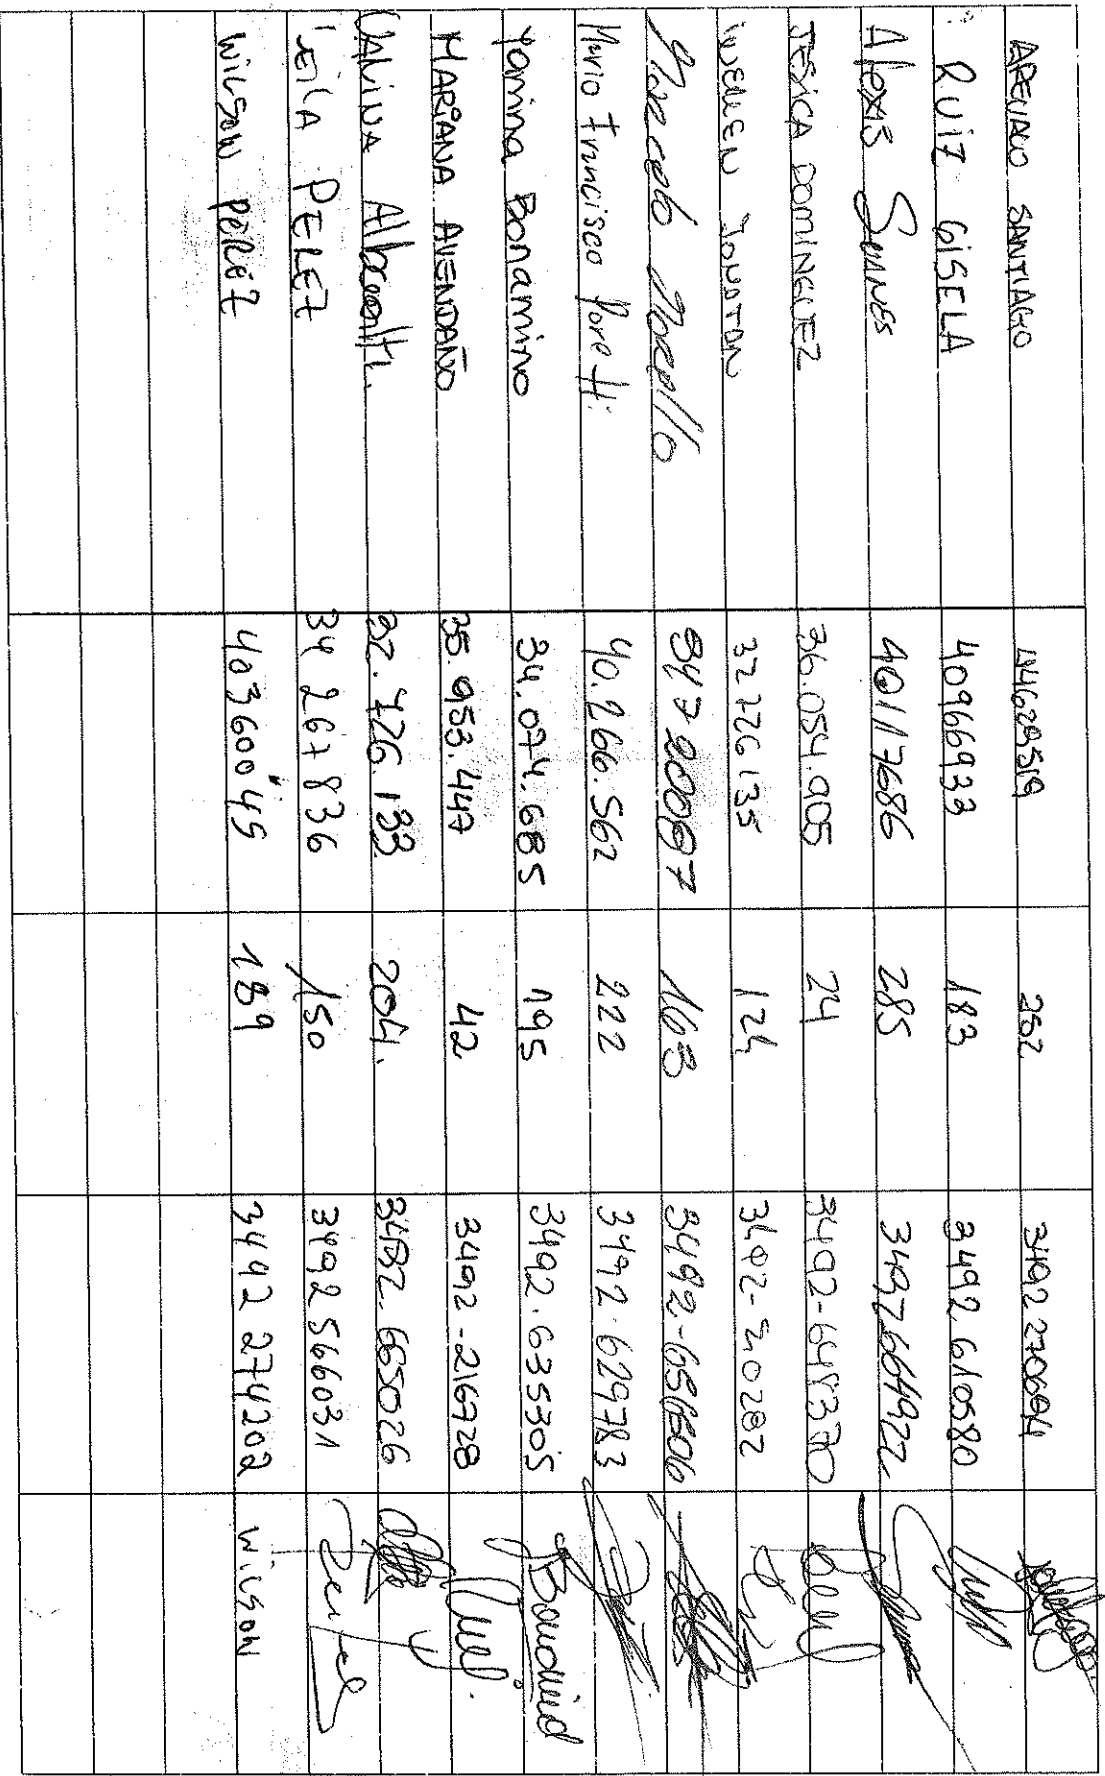 AREVALO SANTIAGO 44629519 252 3492 270694
RUIZ GISELA 40966933 183 3492 610580
Alexis 40117686 285 3497664922
JESICA DOMINGUEZ 36.054.905 24 3492-648370
JONATAN 32726135 124 3492-30282
Marcelo Morello 34720007 163
Mario Francisco Poretti 40.266.562 222 3492-629783
Yamina Bonamino 34.074.685 195 3492.635305 Bonamino
MARIANA AVENDAÑO 35.953.447 42 3492-216728
JANINA 32.726.133 204. 3492-665026
LEILA PEREZ 34 267 836 150 3492 566031
WILSON PEREZ 40360045 189 3492 274202 WILSON